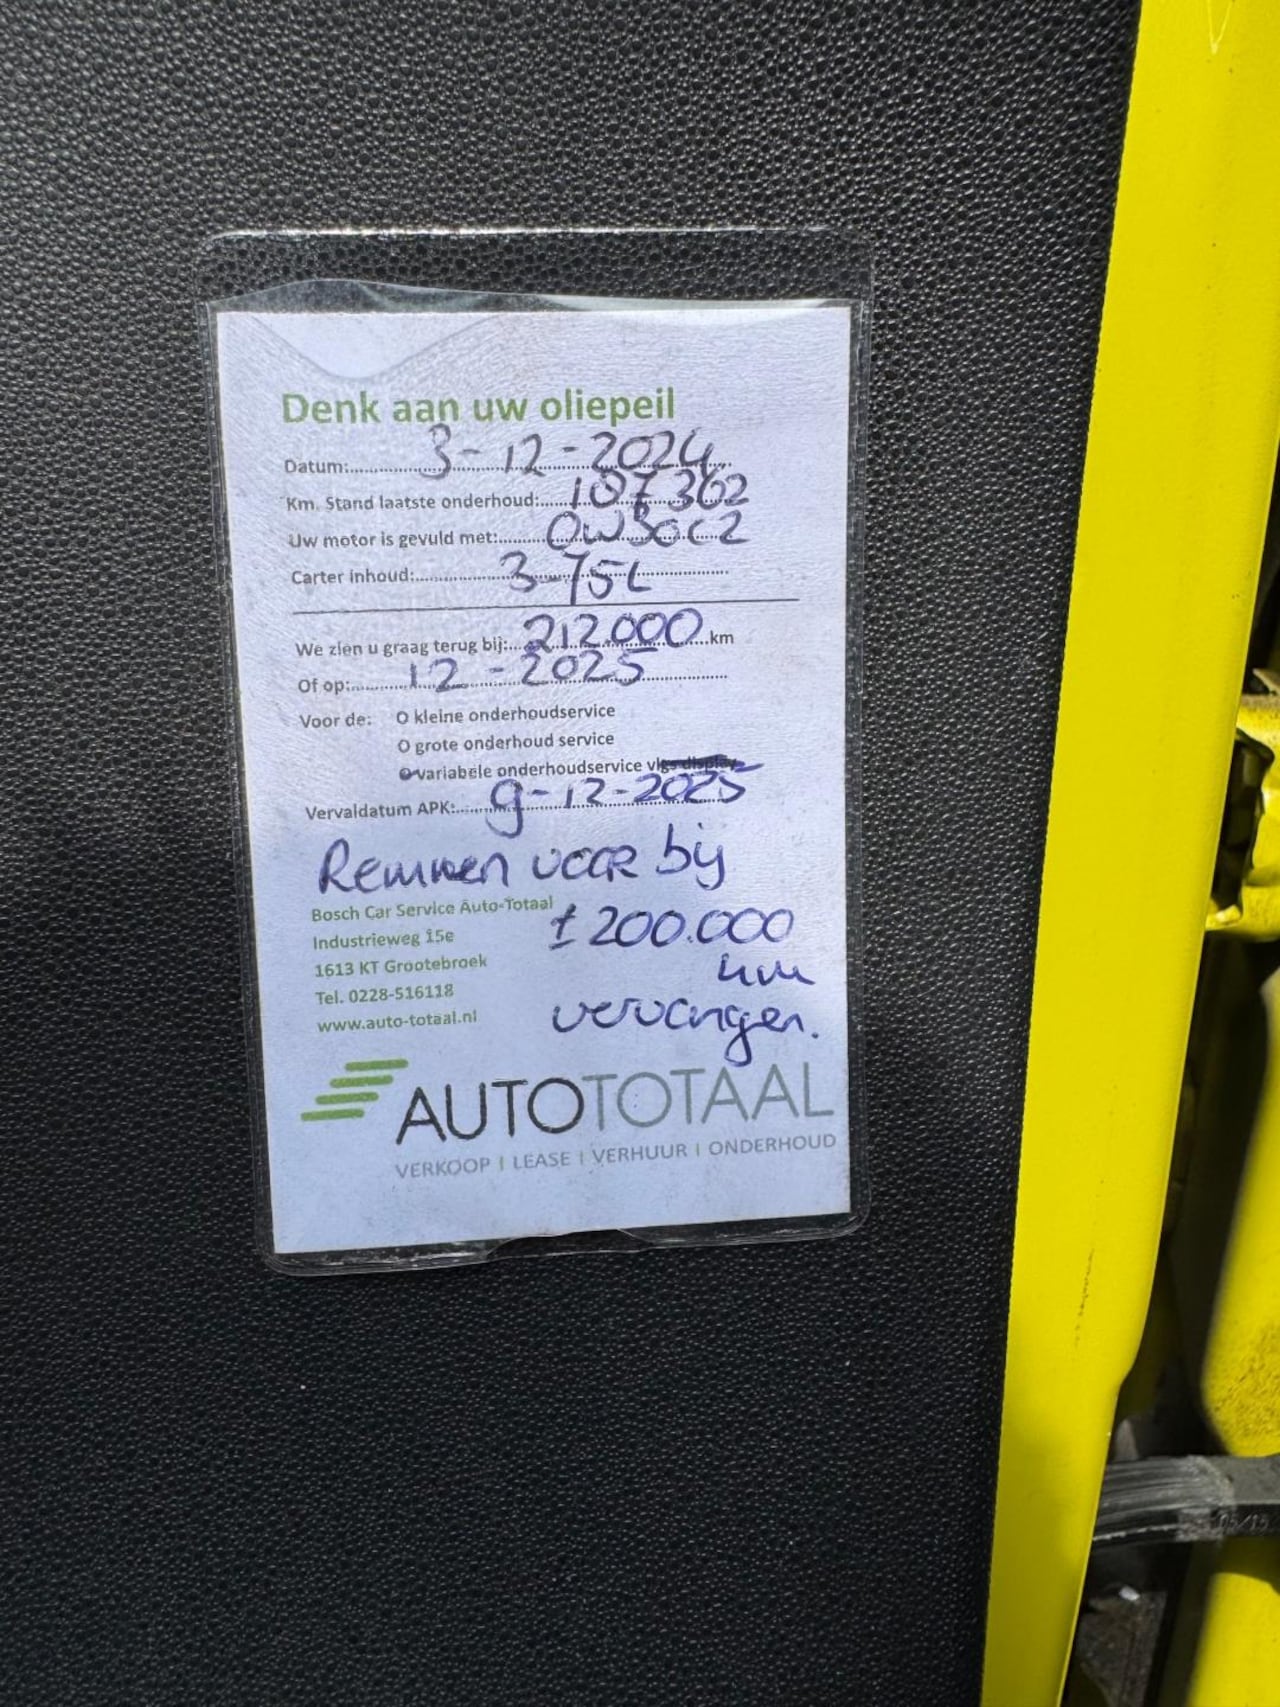 Denk aan uw oliepeil
Datum: 3-12-2024
Km. Stand laatste onderhoud: 107362
Uw motor is gevuld met: 0W30C2
Carter inhoud: 3-75L
We zien u graag terug bij: 212.000 km
Of op: 12-2025
Voor de: O kleine onderhoudservice
O grote onderhoud service
O variabele onderhoudservice vlgs display
Vervaldatum APK: 9-12-2025
Remmen voor bij
± 200.000
km
vervangen.
Bosch Car Service Auto-Totaal
Industrieweg 15e
1613 KT Grootebroek
Tel. 0228-516118
www.auto-totaal.nl
AUTOTOTAAL
VERKOOP | LEASE | VERHUUR | ONDERHOUD